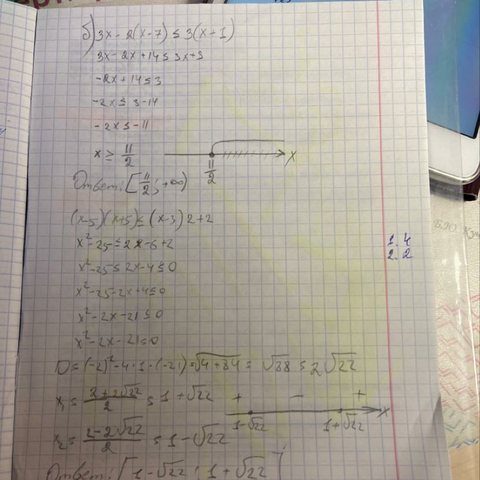 б) 3x - 2(x-7) ≤ 3(x+1)
3x - 2x + 14 ≤ 3x + 3
-2x + 14 ≤ 3
-2x ≤ 3 - 14
-2x ≤ -11
x ≥ 11/2
11/2 x
Ответ: [11/2; +∞)
(x-5)(x+5) ≤ (x-3)2+2
x² - 25 ≤ 2x - 6 + 2
x² - 25 ≤ 2x - 4 ≤ 0
x² - 25 - 2x + 4 ≤ 0
x² - 2x - 21 ≤ 0
x² - 2x - 21 = 0
D = (-2)² - 4·1·(-21) = √4+84 = √88 = 2√22
x₁ = (2+2√22)/2 = 1 + √22
+ - +
1-√22 1+√22 x
x₂ = (2-2√22)/2 = 1 - √22
Ответ: [1-√22; 1+√22]
1.4
2.2